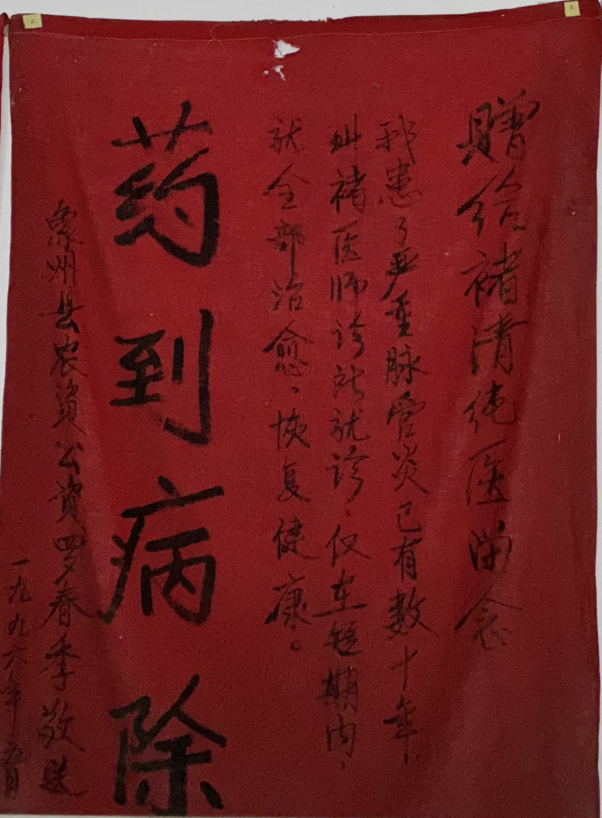 赠给褚清纯医留念
我患了严重脉管炎已有数十年，
叫褚医师诊所就诊，仅在短期内，
就全部治愈，恢复健康。
药到病除
象州县农资公资罗春季敬送
一九九六年月